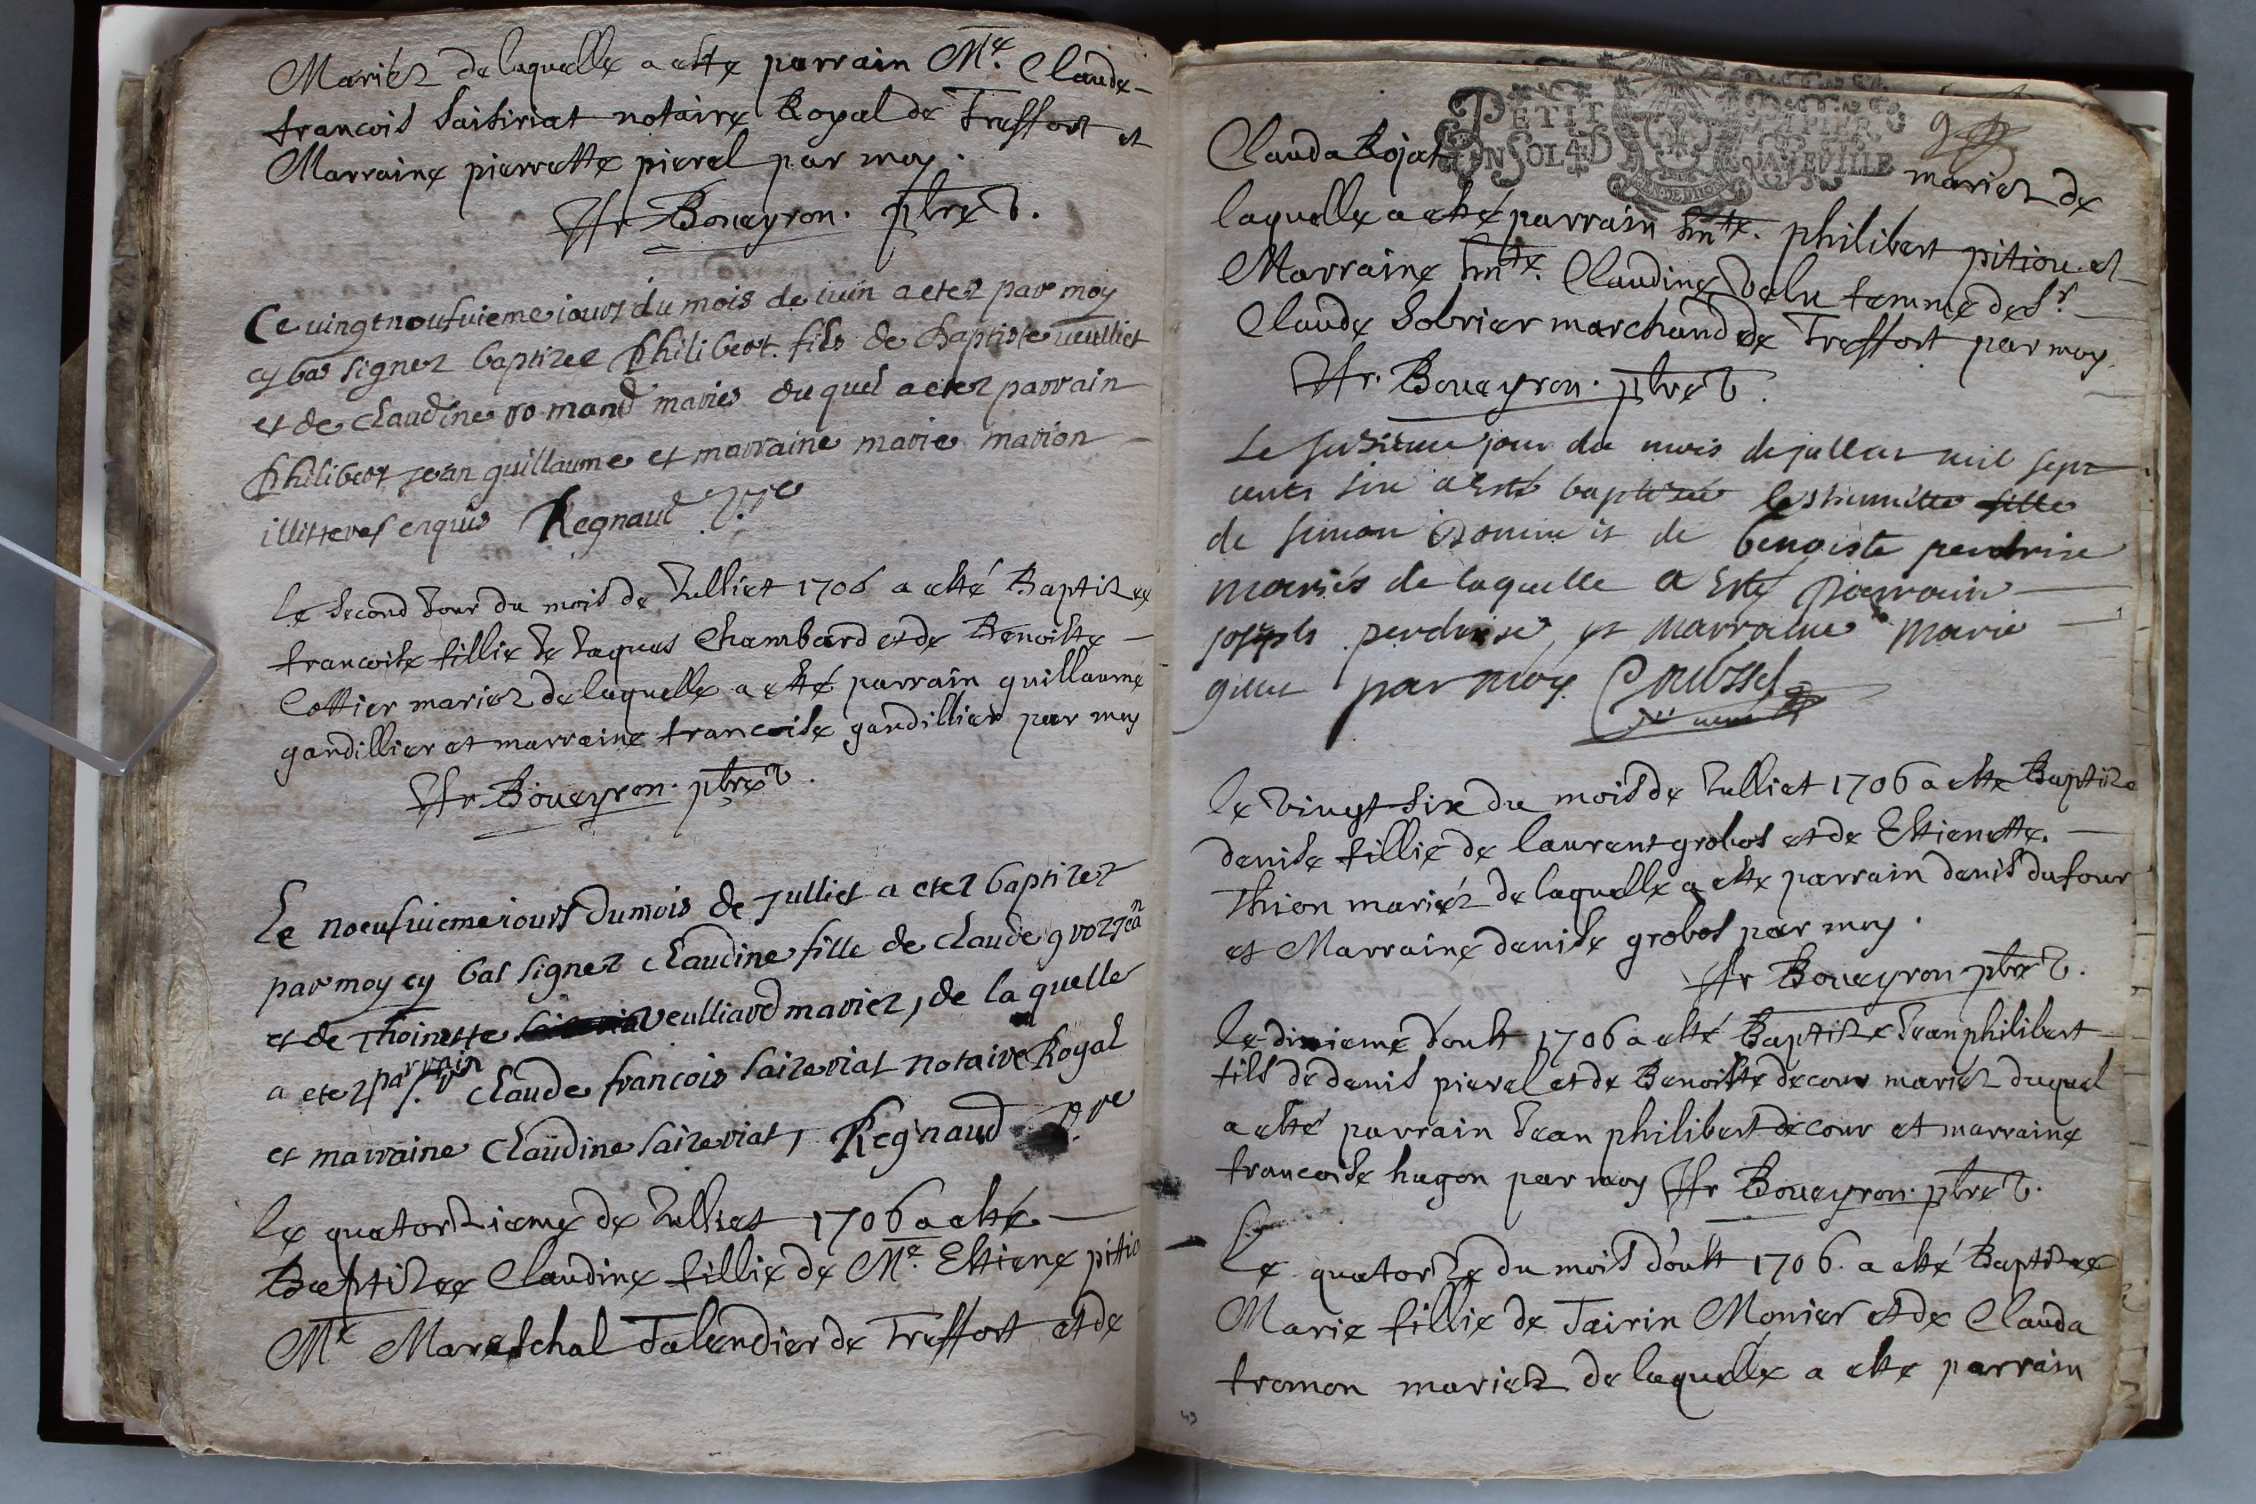 Mariéz de laquelle a esté parrain Me. Claude
francois Saisiriat notaire Royal de Treffort et
Marraine pierrette pierel par moy.
Boueyron. pbre
Ce vingt noufvieme iours du mois de iuin a etez par moy
cy bas signez baptizee philibert fils de baptiste veulliet
et de claudine romand mariés duquel a etez parrain
philibert jean guillaume et marraine marie marion
illitteres enquis Regnaud
le second Jour du mois de Julliet 1706 a esté Baptizee
francoise fillie de Jaques Chambard et de Benoiste
Cottier mariez de laquelle a esté parrain guillaume
gandillier et marraine francoise gandillier par moy
Boueyron. pbre
Le noeufvieme iours du mois de Julliet a etez baptizez
par moy cy bas signez claudine fille de claude grozjean
et de Thoinette veulliard mariez, de la quelle
a etez parrain Sr claude francois saizeriat notaire Royal
et marraine claudine saizeriat, Regnaud
le quatorzieme de Julliet 1706 a esté
Baptizee Claudine fillie de Me. Estiene
Me Mareschal Talendier de Treffort et de
PETIT PAPIER
Clauda Rojat mariez de
laquelle a esté parrain philibert pitiou et
Marraine Claudine femme de Sr.
Claude Sobrier marchand de Treffort par moy
Boueyron. pbre
Le jour du mois de mil sept
cents six a esté baptisée fille
de simon et de benoiste perdrise
mariés de laquelle a esté parrain
joseph perdrise et marraine marie
par moy
le vingt six du mois de Julliet 1706 a esté Baptize
denise fillie de laurent grobos et de Estienette.
Thion mariéz de laquelle a esté parrain denis dufour
et Marraine denise grobos par moy.
Boueyron pbre
le dixieme doust 1706 a esté Baptize Jean philibert
fils de denis pierel et de Benoiste decour mariéz duquel
a esté parrain Jean philibert decour et marraine
francoise hugon par moy Boueyron. pbre
Le quatorze du mois doust 1706. a esté Baptizee
Marie fillie de Tairin Monier et de Clauda
fromon mariez de laquelle a esté parrain